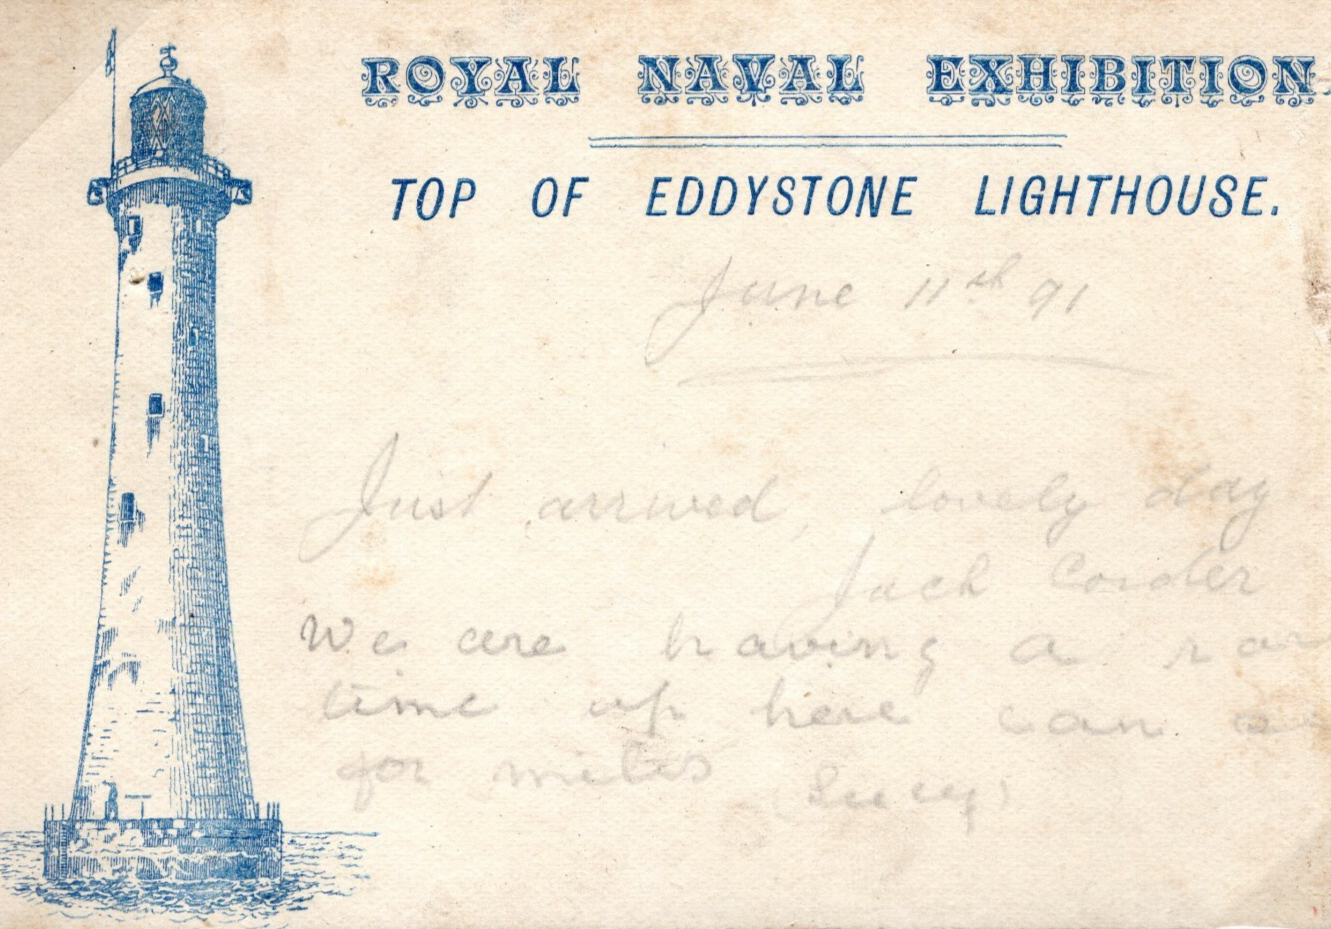 ROYAL NAVAL EXHIBITION.
TOP OF EDDYSTONE LIGHTHOUSE.
June 11th 91
Just arrived, lovely day
Jack Corder
We are having a
time up here can
for miles (Lucy)